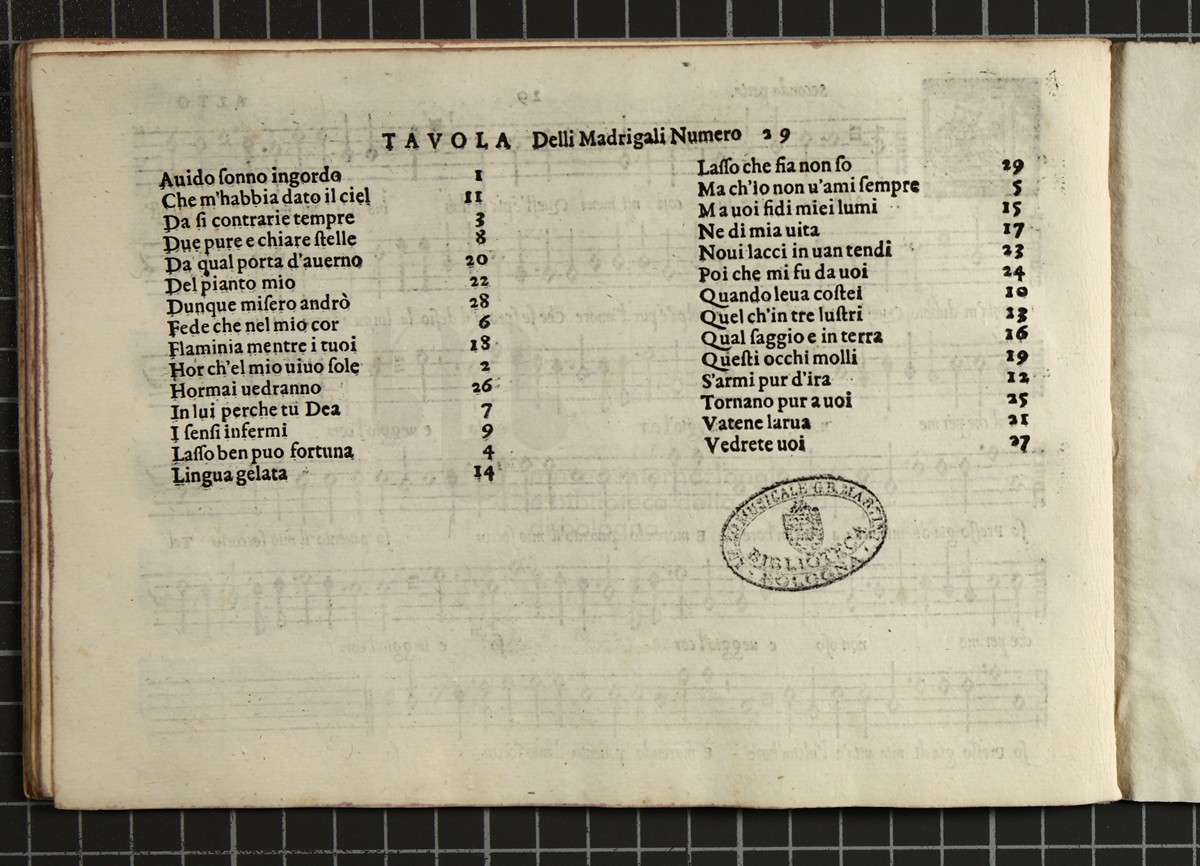 TAVOLA Delli Madrigali Numero 29
Auido ſonno ingordo 1
Che m'habbia dato il ciel 11
Da ſi contrarie tempre 3
Due pure e chiare ſtelle 8
Da qual porta d'auerno 20
Del pianto mio 22
Dunque miſero andrò 28
Fede che nel mio cor 6
Flaminia mentre i tuoi 18
Hor ch'el mio uiuo ſole 2
Hormai uedranno 26
In lui perche tu Dea 7
I ſenſi infermi 9
Laſſo ben puo fortuna 4
Lingua gelata 14
Laſſo che fia non ſo 29
Ma ch'io non u'ami ſempre 5
Ma uoi fidi miei lumi 15
Ne di mia uita 17
Noui lacci in uan tendi 23
Poi che mi fu da uoi 24
Quando leua coſtei 10
Quel ch'in tre luſtri 13
Qual ſaggio e in terra 16
Queſti occhi molli 19
S'armi pur d'ira 12
Tornano pur a uoi 25
Vatene larua 21
Vedrete uoi 27
MUSICALE G.B. MARTINI
BIBLIOTECA
BOLOGNA